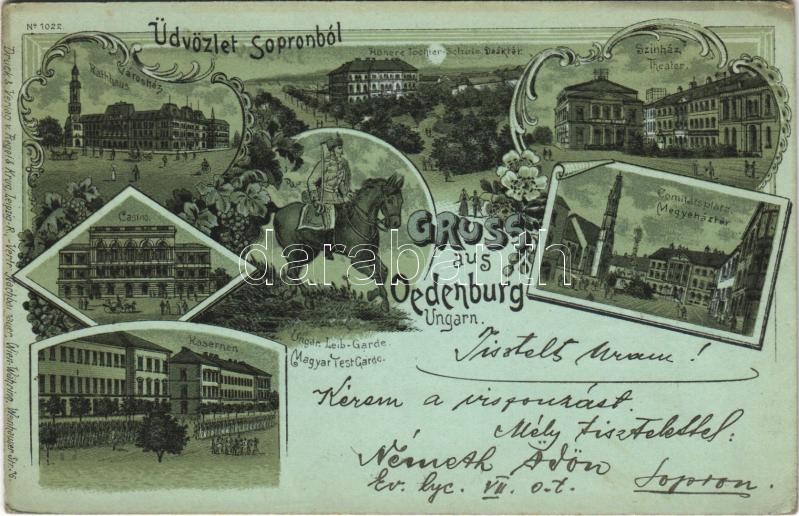 No 1022.
Üdvözlet Sopronból
Rathhaus. Városház.
Höhere Tochter-Schule. Deáktér.
Szinház.
Theater.
Casino.
GRUSS
aus
Oedenburg
Ungarn.
Comitatsplatz.
Megyeháztér.
Ungar. Leib-Garde.
Magyar Test Garde.
Kasernen.
darabanth.com
Druck & Verlag v. Regel & Krug, Leipzig-R.
Wien-Währing,
Tisztelt Uram!
Kérem a viszonzást.
Mély tisztelettel:
Németh Ödön
Ev. lyc. VII. o.t. Sopron.